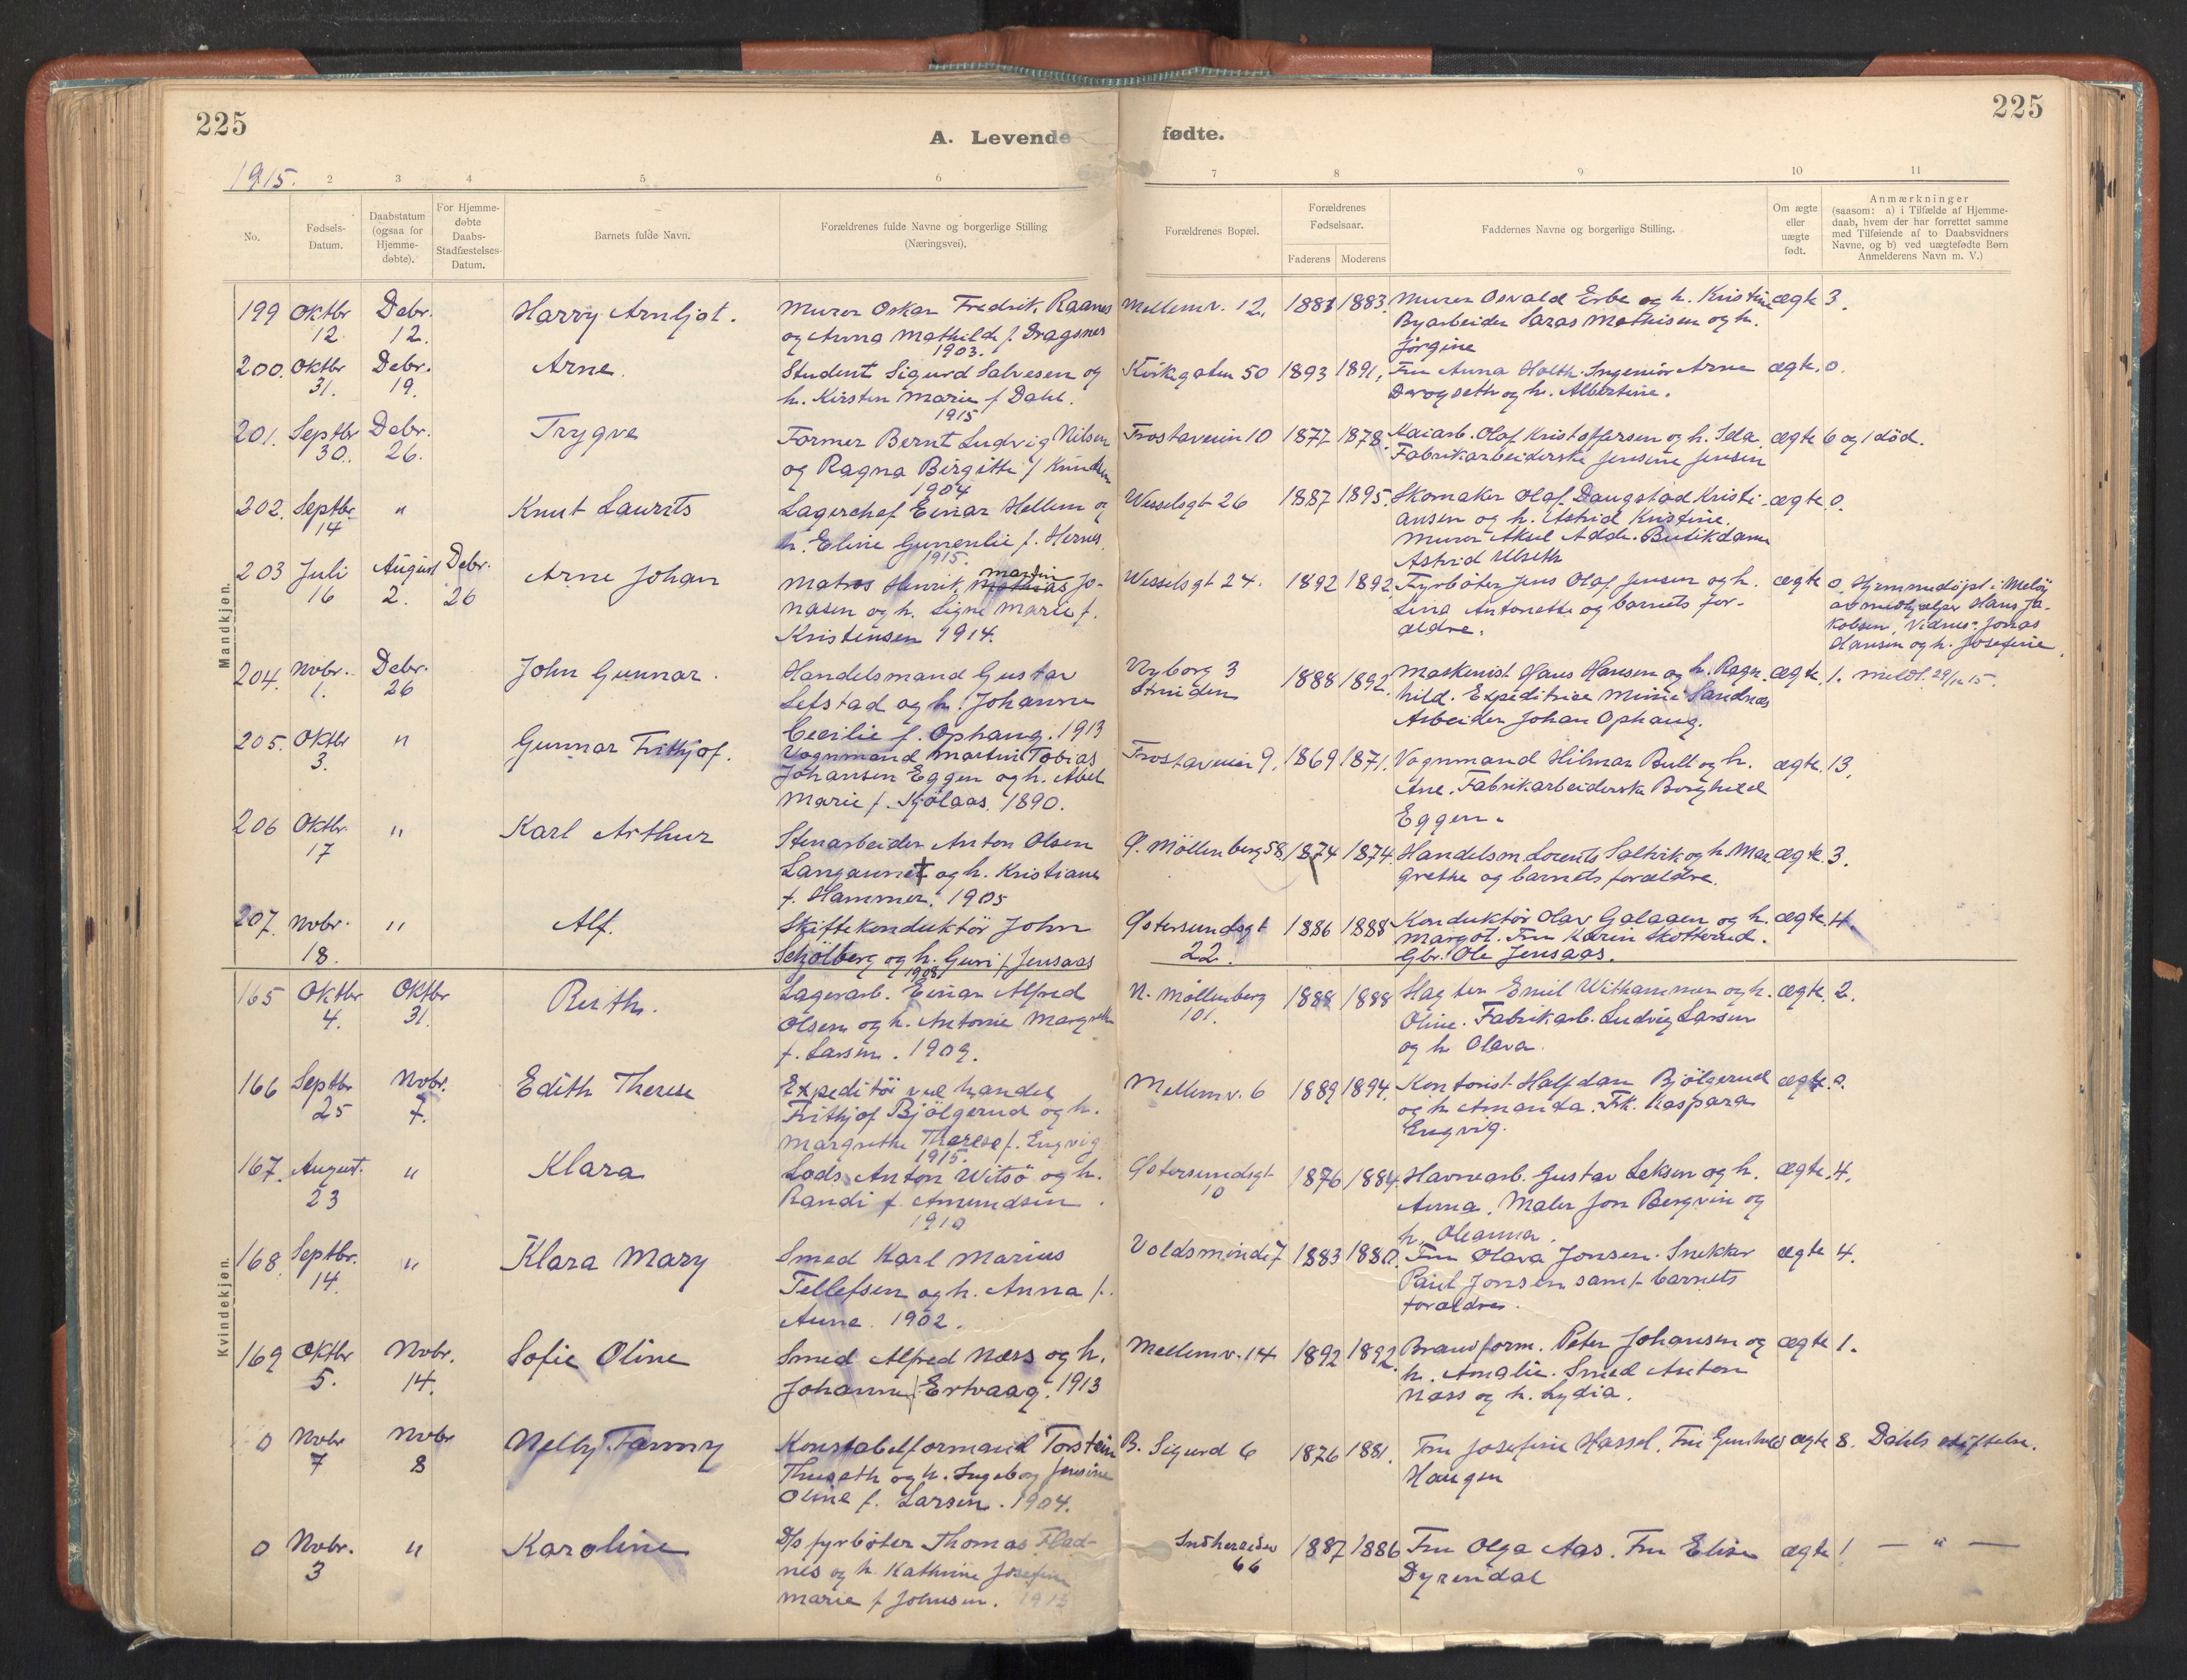 225
225
A. Levende fødte.
1915.
2
3
4
5
6
7
8
9
10
11
No.
Fødsels-
Datum.
Daabstatum
(ogsaa for
Hjemme-
døbte).
For Hjemme-
døbte
Daabs-
Stadfæstelses-
Datum.
Barnets fulde Navn.
Forældrenes fulde Navne og borgerlige Stilling
(Næringsvei).
Forældrenes Bopæl.
Forældrenes
Fødselsaar.
Faderens
Moderens
Faddernes Navne og borgerlige Stilling.
Om ægte
eller
uægte
født.
Anmærkninger
(saasom: a) i Tilfælde af Hjemme-
daab, hvem der har forrettet samme
med Tilføiende af to Daabsvidners
Navne, og b) ved uægtefødte Børn
Anmelderens Navn m. V.)
Mandkjøn.
199 Oktbr Debr. Harry Arnljot. Murer Oskar Fredrik Raanes Mellemv. 12. 1881 1883. Murer Osvald Erbe og h. Kristine ægte 3.
12 12. og Anna Mathilde f. Dragsnes Byarbeider Saras Mathisen og h.
1903. Jørgine
200. Oktbr Debr. Arne. Student Sigurd Salvesen og Kirkegaten 50 1893 1891. Fru Anna Holth. Ingeniör Arne ægte. 0.
31. 19. h. Kirsten Marie f Dahl. Drogseth og h. Albertine.
1915
201. Septbr Debr. Trygve Former Bernt Ludvig Nilsen Frostaveien 10 1877 1878. Kaiarb. Olaf Kristoffersen og h. Ida. ægte 6 og 1 död.
30. 26. og Ragna Birgitte f Knudsen Fabrikarbeiderske Jensine Jensen
1904
202. Septbr " Knut Laurits Lagerchef Einar Hellem og Wesselsgt 26 1887 1895. Skomaker Olaf Daugstad Kristi- ægte. 0.
14 h. Eline Gunenlie f. Hernes. ansen og h. Astrid Kristine.
1915. Murer Aksel Adde. Butikdame
Astrid Ulseth
203 Juli August Debr. Arne Johan Matros Henrik Martin Jo- Wesselsgt 24. 1892 1892. Fyrböter Jens Olaf Jensen og h. ægte 0. Hjemmedöpt i Melöy
16 2. 26 nasen og h. Signe Marie f. Lina Antonette og barnets for- av medhjælper Hans Ja-
Kristensen 1914. ældre. kobsen. Vidner: Jonas
Hansen og h. Josefine.
204. Nvbr. Debr. John Gunnar. Handelsmand Gustav Nyborg 3 1888 1892. Maskinist Hans Hansen og h. Ragn- ægte. 1. meldt. 29/12 15.
1. 26 Lefstad og h. Johanne Strinden hild. Expeditrice Minni Sandnes
Cecilie f. Ophaug. 1913 Arbeider Johan Ophaug.
205. Oktbr " Gunnar Frithjof. Vognmand Martin Tobias Frostaveien 9. 1869 1871. Vognmand Hilmar Bull og h. ægte. 13.
3. Johansen Eggen og h. Abel Ane. Fabrikarbeiderske Borghild
Marie f. Kjölaas. 1890. Eggen.
206 Oktbr. " Karl Arthur Stenarbeider Anton Olsen Ö. Möllenberg 58. 1874 1874. Handelsm. Lorents Saltvik og h. Mar- ægte. 3.
17 Langaunet † og h. Kristiane grethe og barnets forældre.
f. Hammer. 1905
207. Nvbr. " Alf. Skiftekonduktör John Östersundsgt 1886 1888 Konduktör Olav Galaaen og h. ægte. 4.
18. Schjölberg og h. Guri f. Jensaas 22. Margot. Fru Karin Skotterud.
1908 Gbr. Ole Jensaas.
Kvindekjøn.
165 Oktbr Oktbr Ruth. Lagerarb. Einar Alfred N. Möllenberg 1888 1888 Slagter Emil Withammer og h. ægte. 2.
4. 31. Olsen og h. Antonie Margrethe 101. Oline. Fabrikarb. Ludvig Larsen
f. Larsen. 1909. og h Olava.
166 Septbr Nvbr. Edith Therese Expeditör ved handel Mellemv. 6 1889 1894. Kontorist Halfdan Bjölgerud ægte. 0.
25 7. Frithjof Bjölgerud og h. og h Amanda. Frk. Kaspara
Margrethe Therese f. Engvig Engvig.
1915.
167. August. " Klara Lods Anton Witsö og h. Östersundsgt 1876 1884. Havnearb. Gustav Leksen og h. ægte. 4.
23 Randi f Amundsen. 10 Anna. Maler Jon Bergvin og
1910 h. Oleanna.
168. Septbr. " Klara Mary Smed Karl Marius Voldsminde 7 1883 1880. Fru Olava Jonsen. Snekker ægte 4.
14. Tellefsen og h. Anna f. Paul Jonsen samt barnets
Aune. 1902. forældre.
169 Oktbr Nvbr. Sofie Oline Smed Alfred Næss og h. Mellemv. 14 1892 1892. Brandform. Peter Johansen og ægte 1.
5. 14. Johanne f Ertvaag. 1913 h. Amalie. Smed Anton
Næss og h. Lydia.
0 Nvbr Nvbr Nelly Fanny Konstabelformand Torstein B. Sigurd 6 1876 1881. Fru Josefine Hassel. Fru Gunhild ægte 8. Dahls stiftelse.
7 8 Thuseth og h. Ingeborg Jensine Haugen
Oline f. Larsen. 1904.
0 Nvbr. " Karoline D/s fyrböter Thomas Flad- Indherredsv 1887 1886 Fru Olga Aas. Fru Elise ægte 1 — " —
3 nes og h Kathrine Josefine 66 Dyrendal
Marie f Johnsen. 1913